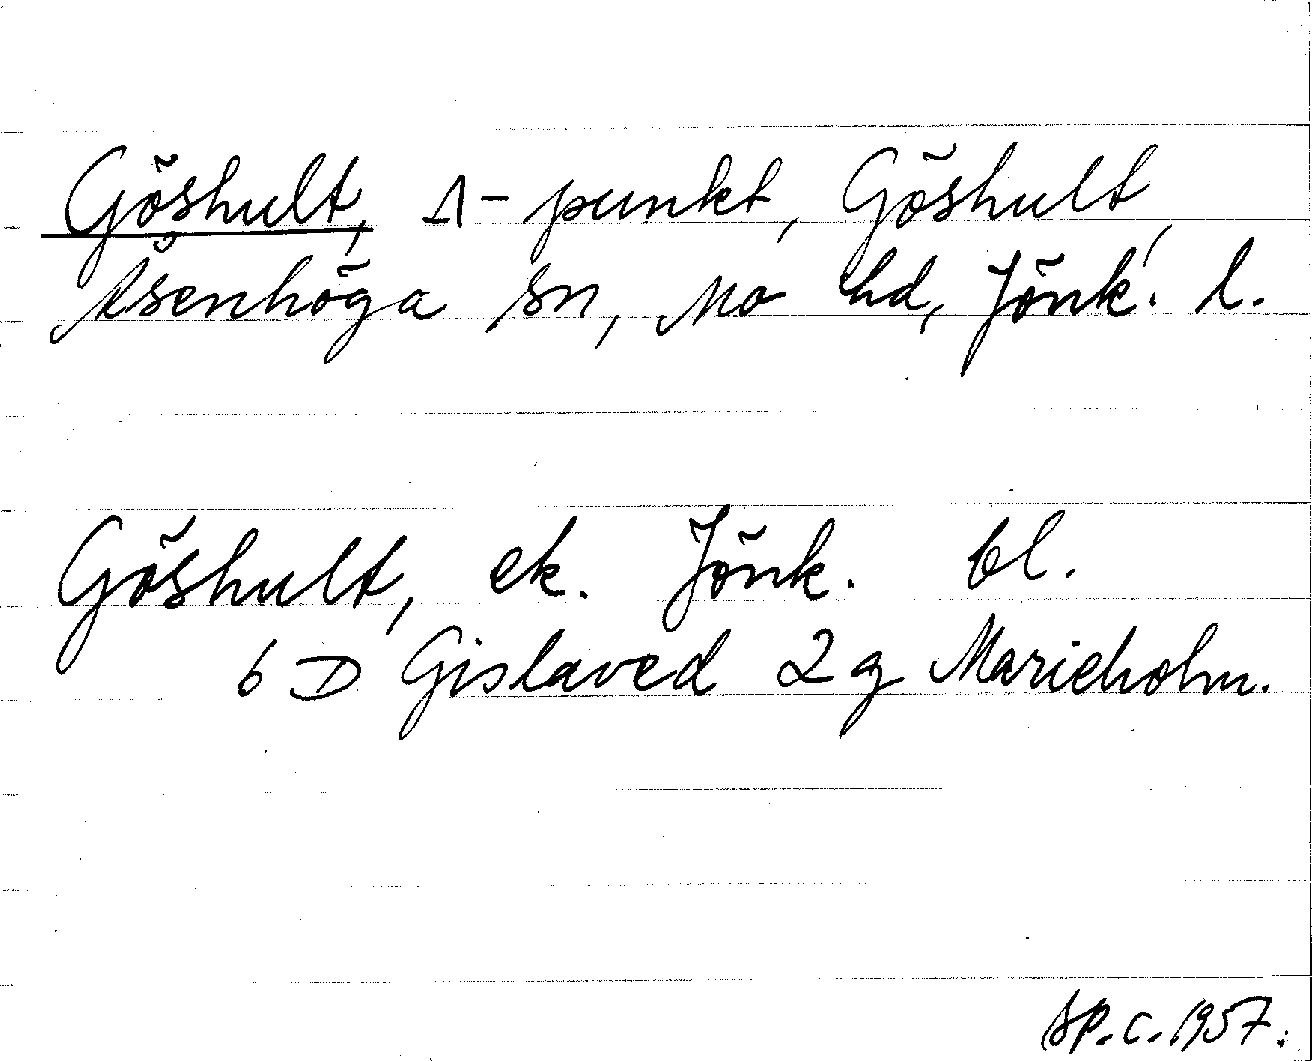 Göshult, Δ-punkt, Göshult,
Åsenhöga sn, Mo hd, Jönk. l.
Göshult, ek. Jönk. bl.
6 D Gislaved 2 g Marieholm.
SP. C. 1957.